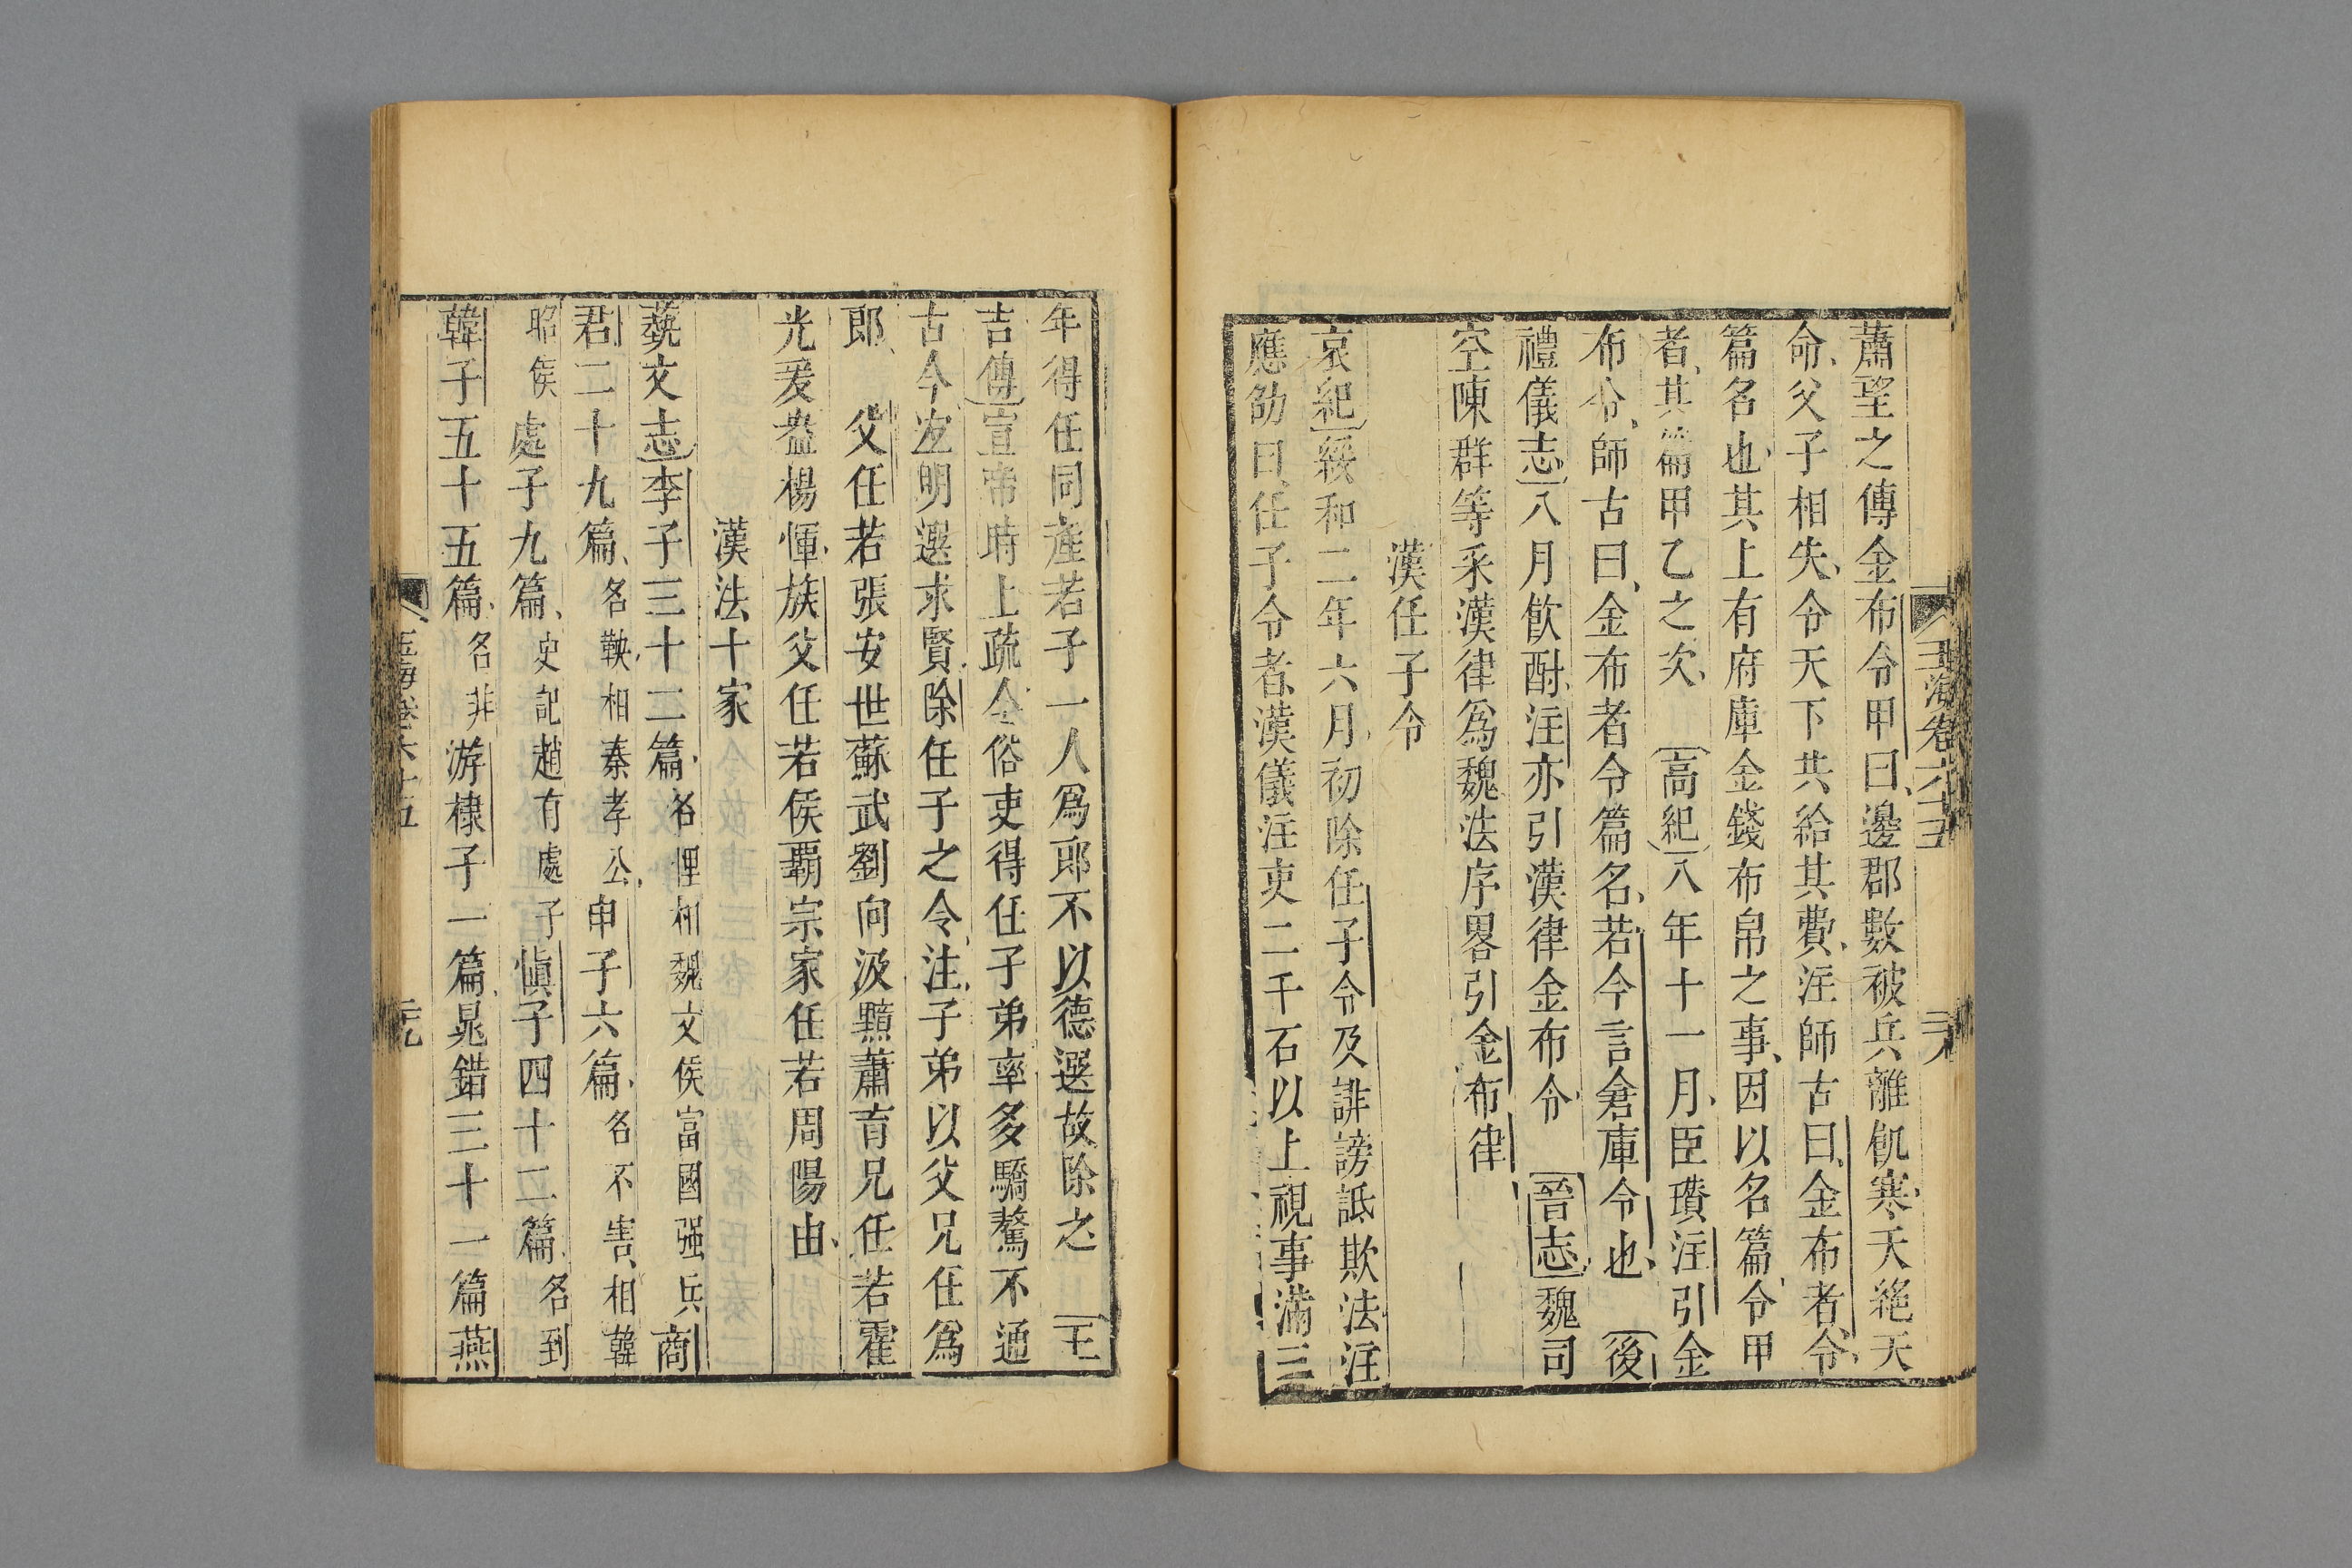 蕭望之傳金布令甲曰邊郡數被兵離飢寒夭絕天
命父子相失令天下共給其費注師古曰金布者令
篇名也其上有府庫金錢布帛之事因以名篇令甲
者其篇甲乙之次 高紀八年十一月臣瓚注引金
布令師古曰金布者令篇名若今言倉庫令也 後
禮儀志八月飲酎注亦引漢律金布令 晉志魏司
空陳群等采漢律爲魏法序畧引金布律
漢任子令
哀紀綏和二年六月初除任子令及誹謗詆欺法注
應劭曰任子令者漢儀注吏二千石以上視事滿三
玉海卷六十五 二十八
年得任同產若子一人爲郎不以德選故除之 王
吉傳宣帝時上疏今俗吏得任子弟率多驕驁不通
古今宜明選求賢除任子之令注子弟以父兄任爲
郎 父任若張安世蘇武劉向汲黯蕭育兄任若霍
光爰盎楊惲族父任若侯霸宗家任若周陽由
漢法十家
蓺文志李子三十二篇名悝相魏文侯富國强兵商
君二十九篇名鞅相秦孝公申子六篇名不害相韓
昭侯處子九篇史記趙有處子愼子四十二篇名到
韓子五十五篇名非游棣子一篇晁錯三十一篇燕
玉海卷六十五 二十九